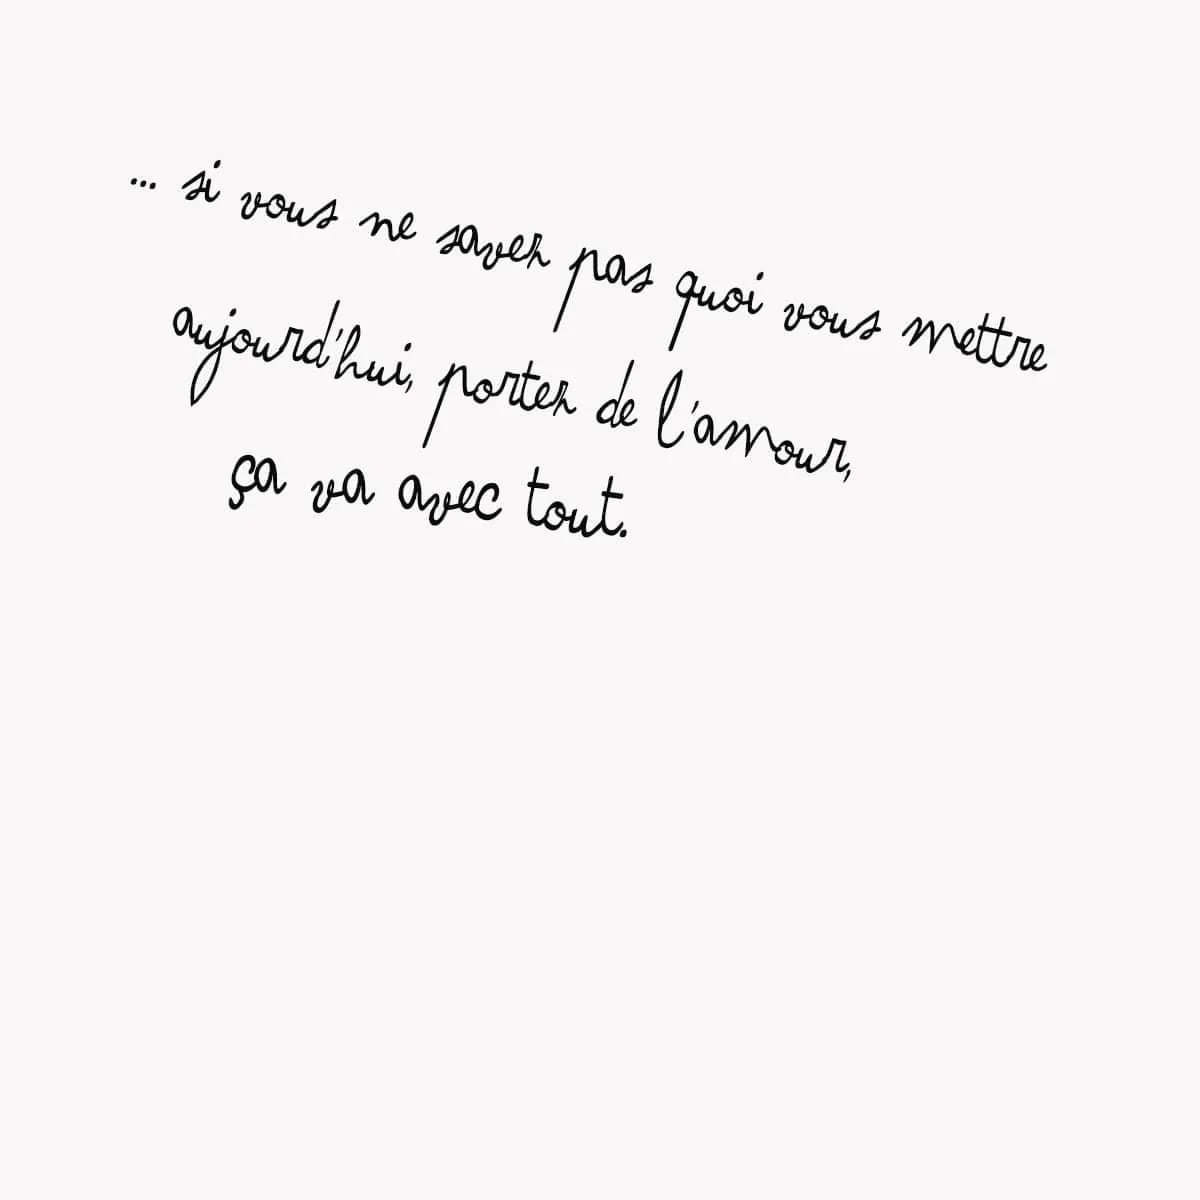 ... si vous ne savez pas quoi vous mettre
aujourd'hui, portez de l'amour,
ça va avec tout.